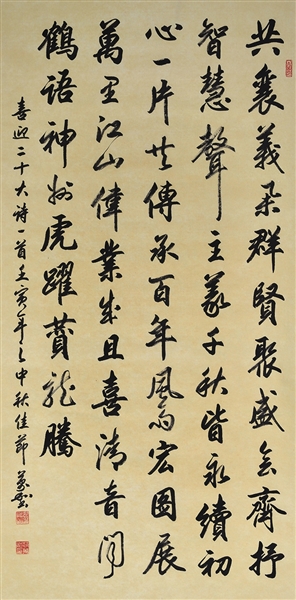 共襄義舉群賢聚盛会齊抒
智慧聲主義千秋皆永續初
心一片共傳承百年風雨宏圖展
萬里江山偉業成且喜清音聞
鶴語神州虎躍贊龍騰
喜迎二十大詩一首壬寅年之中秋佳節